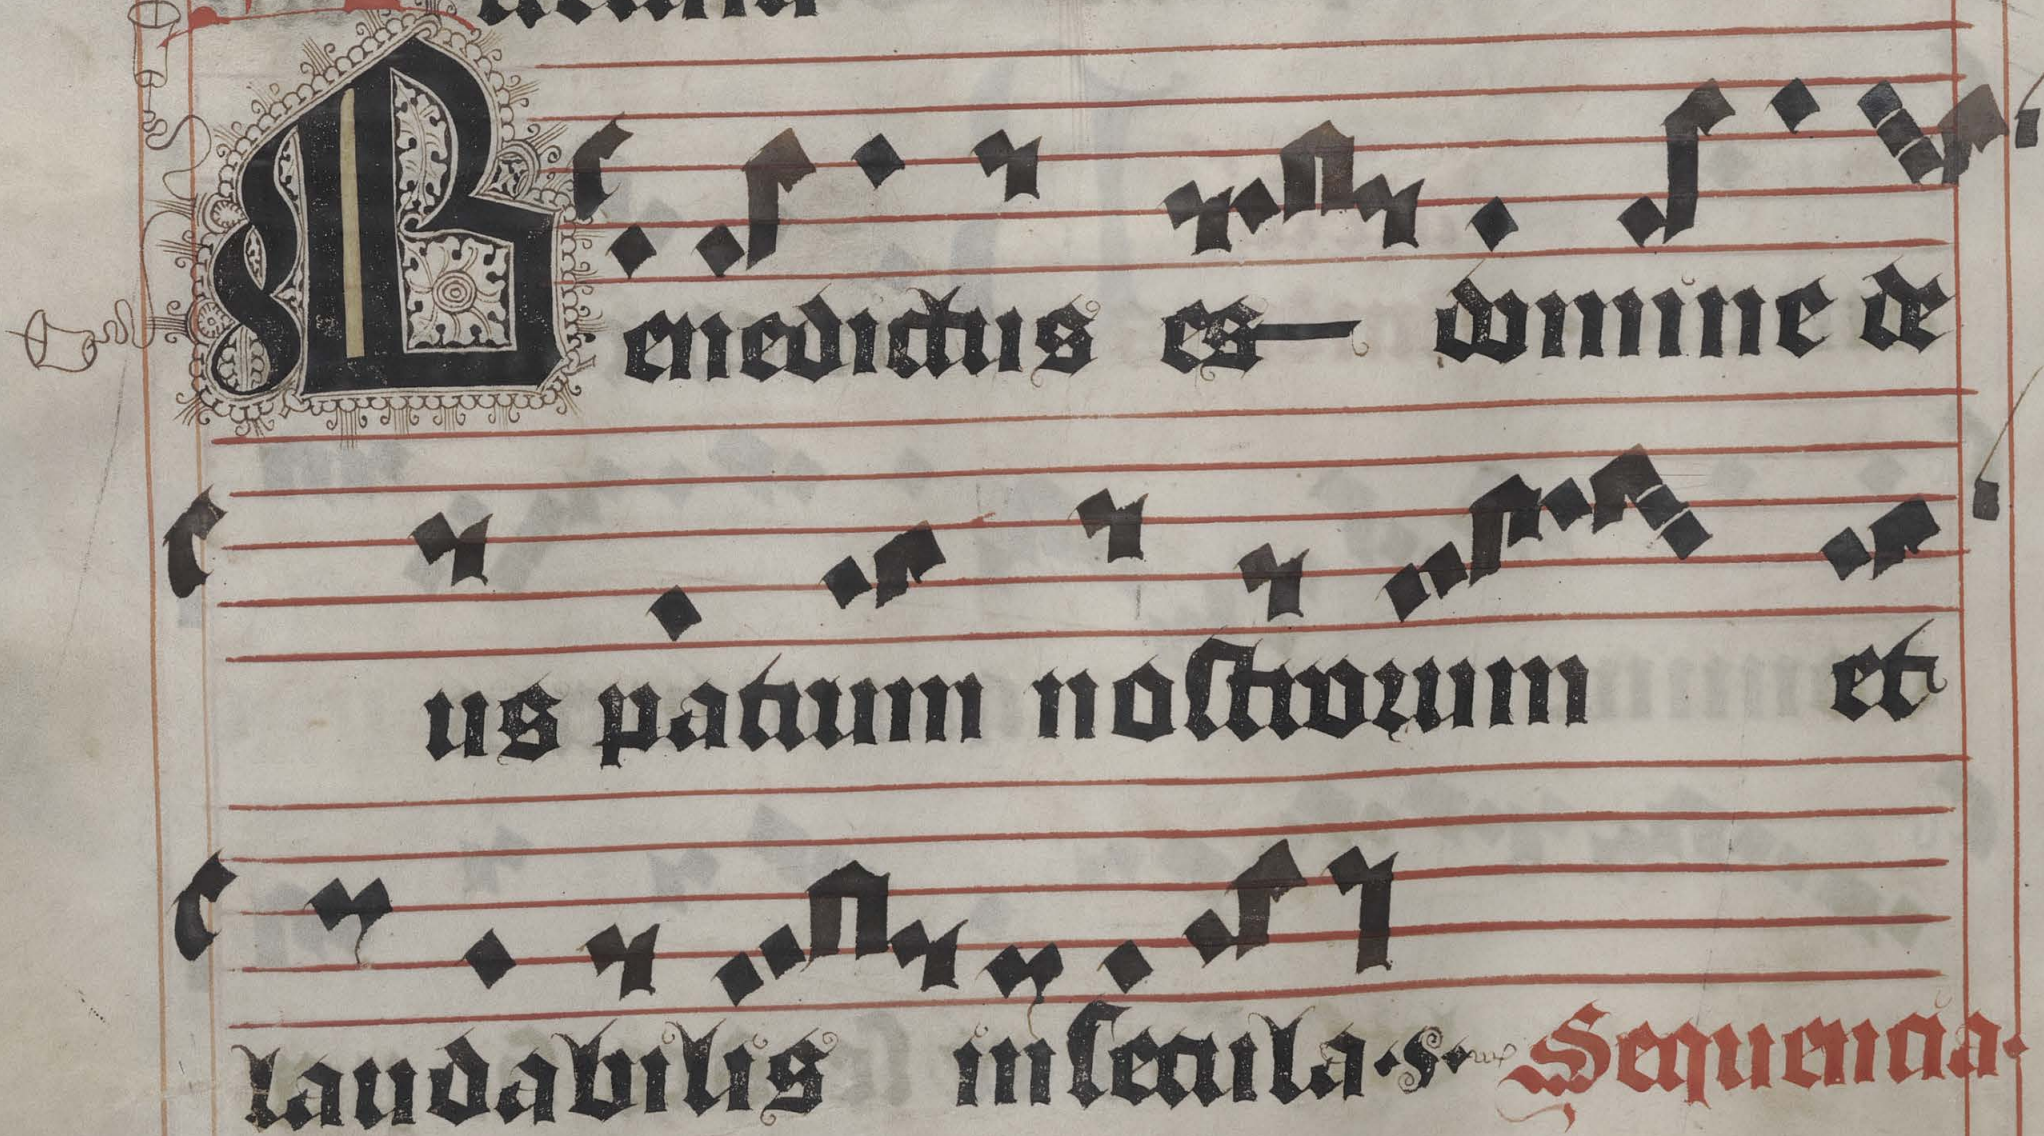 Benedictus es domine de
us patrum nostrorum et
laudabilis in secula. s. Sequencia.